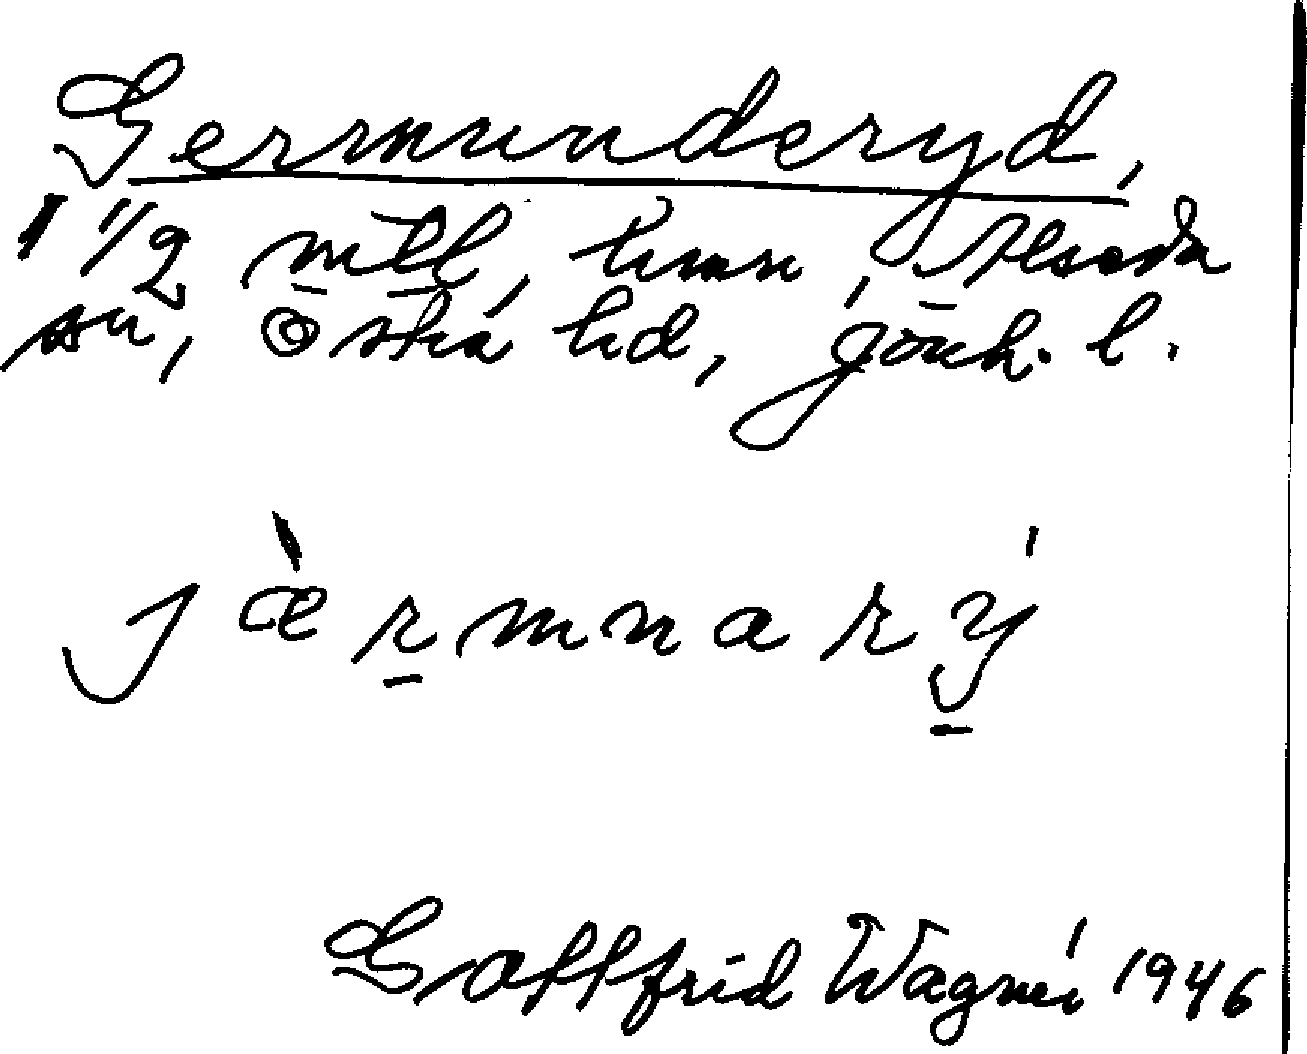 Germunderyd,
1 1/2 mtl, hmn, Alseda
sn, Östra hd, Jönk. l.
jæ̀rmnarý
Gottfrid Wagnér 1946